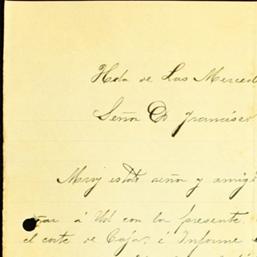 Hda de Las Merced
Señor Dn Francisco
Muy estdo señor y amigo
á Ud con la presente
el corte de Caja, é Informe